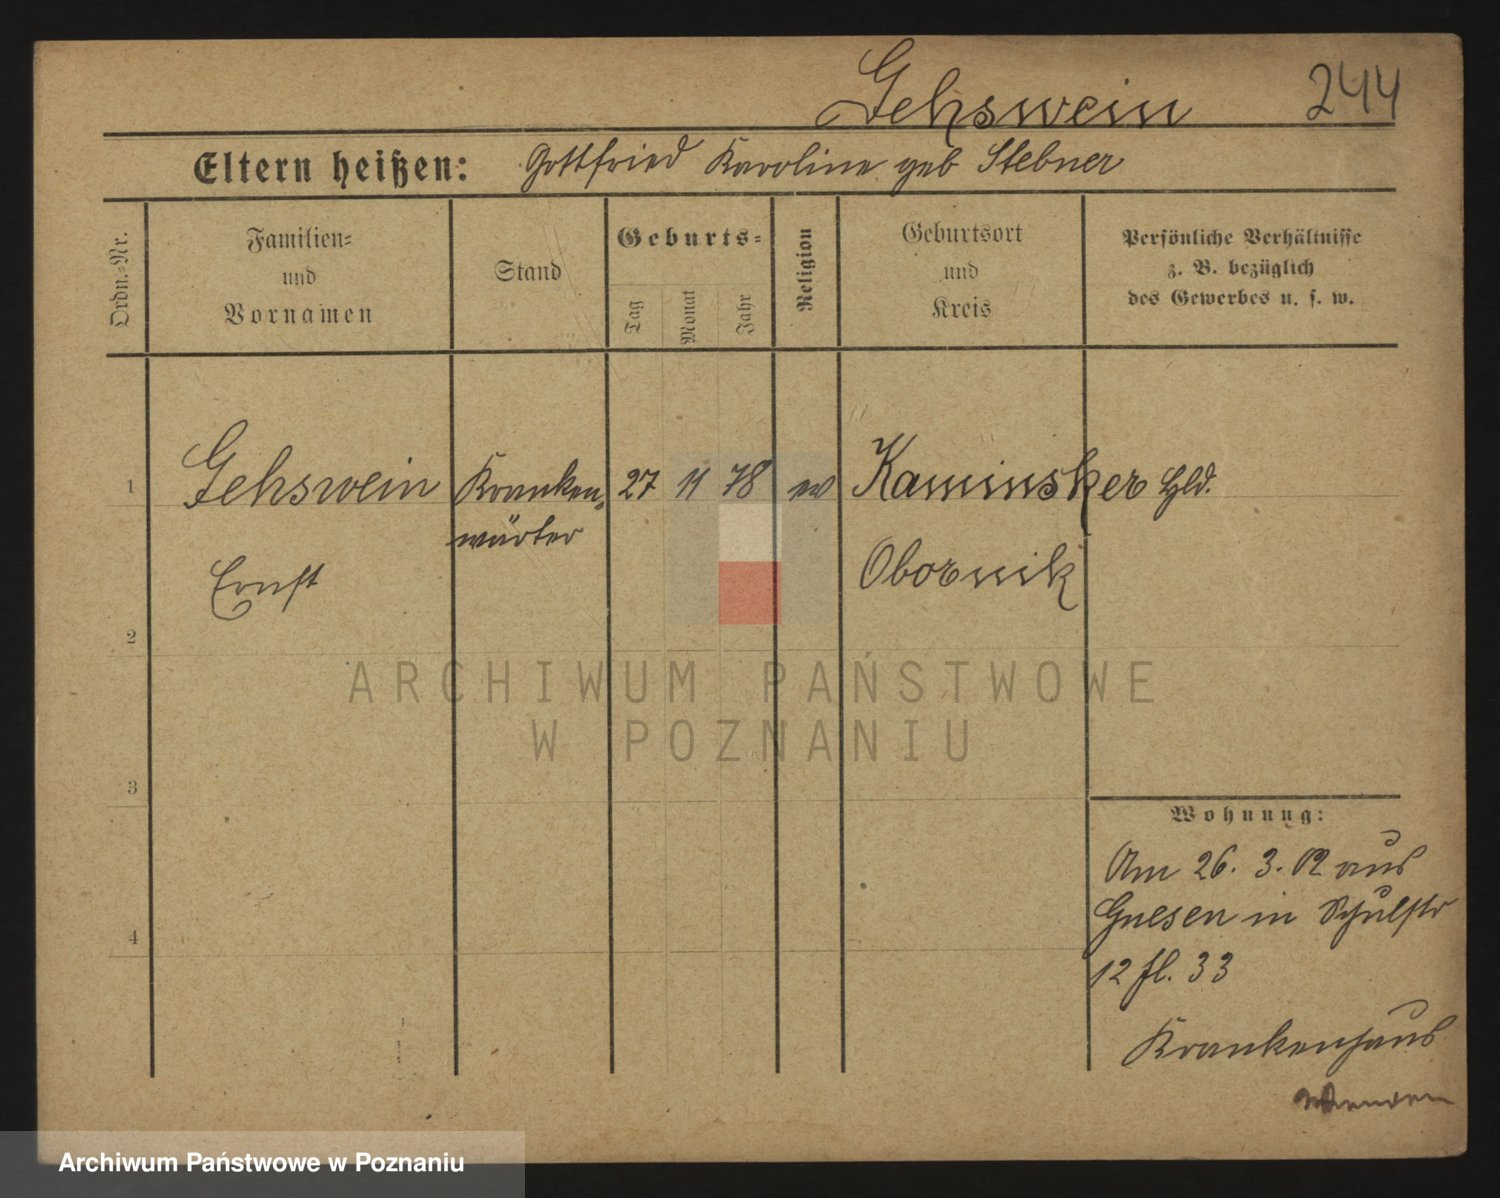 Gehswein 244
Eltern heißen: Gottfried Karoline geb Stebner
Ordn.=Nr.
Familien=
und
Vornamen
Stand
Geburts=
Tag
Monat
Jahr
Religion
Geburtsort
und
Kreis
Persönliche Verhältnisse
z. B. bezüglich
des Gewerbes u. s. w.
1 Gehswein Kranken= 27 11 78 ev Kaminsker Hld.
wärter
Ernst Obornik
2
3
4
Wohnung:
Am 26. 3. 02 aus
Gnesen in Schulstr
12 fl. 33
Krankenhaus
wenden
ARCHIWUM PAŃSTWOWE
W POZNANIU
Archiwum Państwowe w Poznaniu